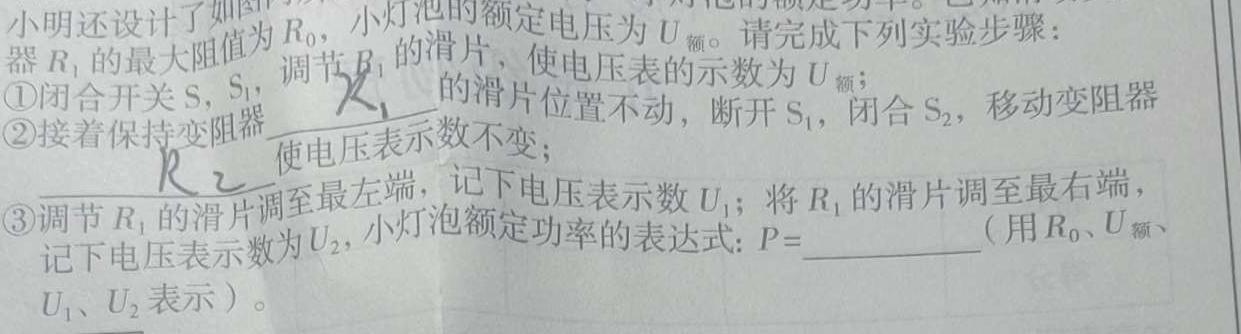 小明还设计了如图
小灯泡的额定电压为U额。请完成下列实验步骤：
器R₁的最大阻值为R₀，
①闭合开关S，S₁，调节R₁的滑片，使电压表的示数为U额；
②接着保持变阻器 R₁ 的滑片位置不动，断开S₁，闭合S₂，移动变阻器
R₂ 使电压表示数不变；
③调节R₁的滑片调至最左端，记下电压表示数U₁；将R₁的滑片调至最右端，
记下电压表示数为U₂，小灯泡额定功率的表达式：P=________（用R₀、U额、
U₁、U₂表示）。